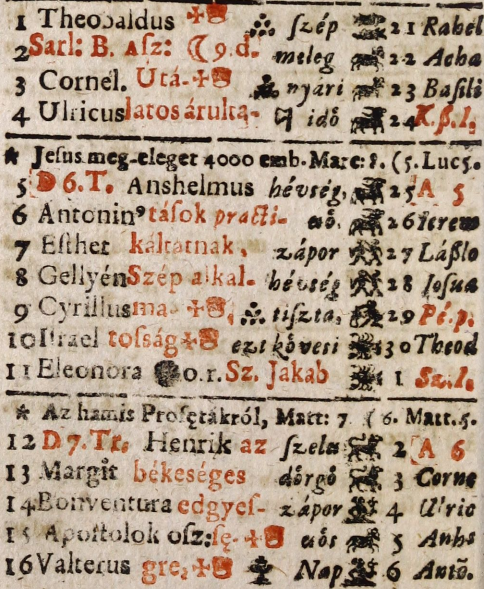 1 Theobaldus ſzép 21 Rahel
2 Sarl: B. Aſz: ☾ 9. d. meleg 22 Acha
3 Cornél. Utá- nyari 23 Baſili
4 Ulricus latos árulta- idő 24 K. ß. l.
* Jesus meg-eleget 4000 emb. Marc: 8. (5. Luc 5.
5 D 6. T. Anshelmus hévség, 25 A 5
6 Antonin⁹ táſok practi- 26 Jerem
7 Eſthet káltatnak, zápor 27 Láßlo
8 Gellyén Szép alkal- hévség 28 Joſua
9 Cyrillus ma- tiſzta, 29 Pé. p.
10 Iſrael toſság ezt kỏveti 30 Theod
11 Eleonora 0. r. Sz. Jakab 1
* Az hamis Profętákról, Matt: 7 (6. Matt. 5.
12 D 7. Tr. Henrik az ſzeles 2 A 6
13 Margit békeséges dỏrgỏ 3 Corne
14 Bonventura edgyeſ- zápor 4 Ulric
15 Apoſtolok oſz: ſę- 5 Anhs
16 Valterus gre, Nap 6 Antō.